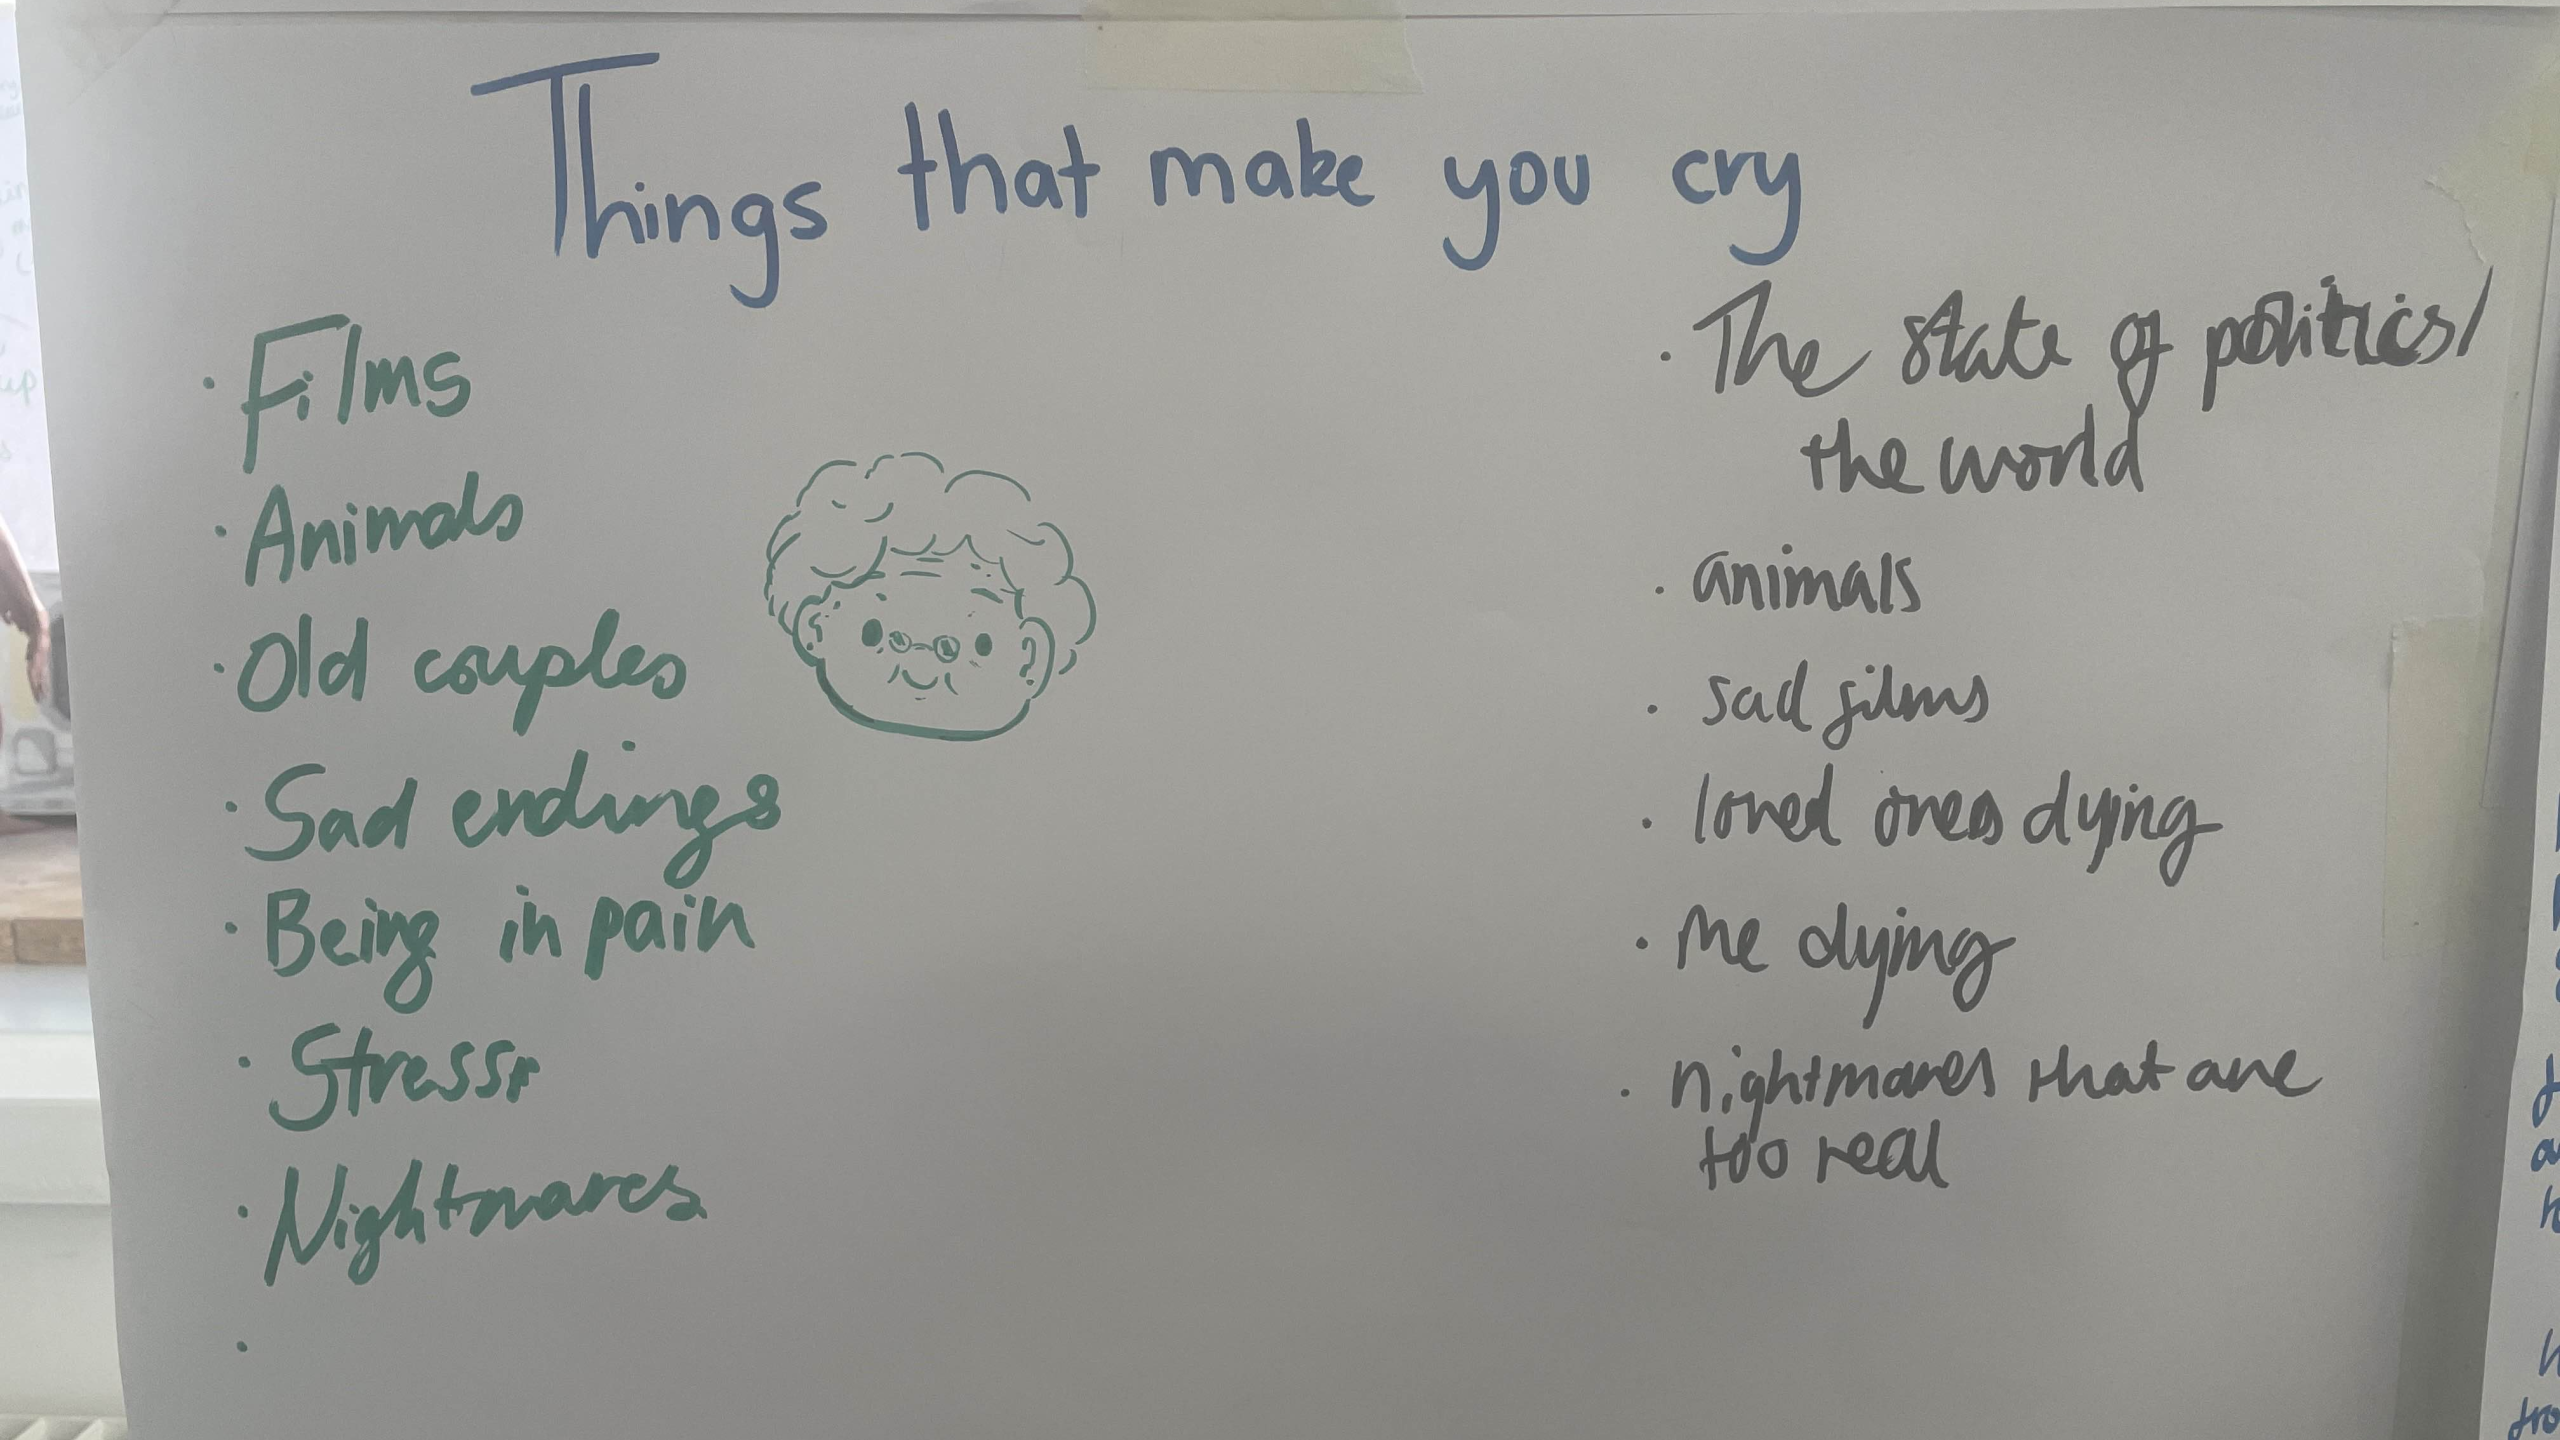 Things that make you cry
· Films
· Animals
· Old couples
· Sad endings
· Being in pain
· Stress
· Nightmares
·
· The state of politics/
the world
· animals
· sad films
· loved ones dying
· me dying
· nightmares that are
too real